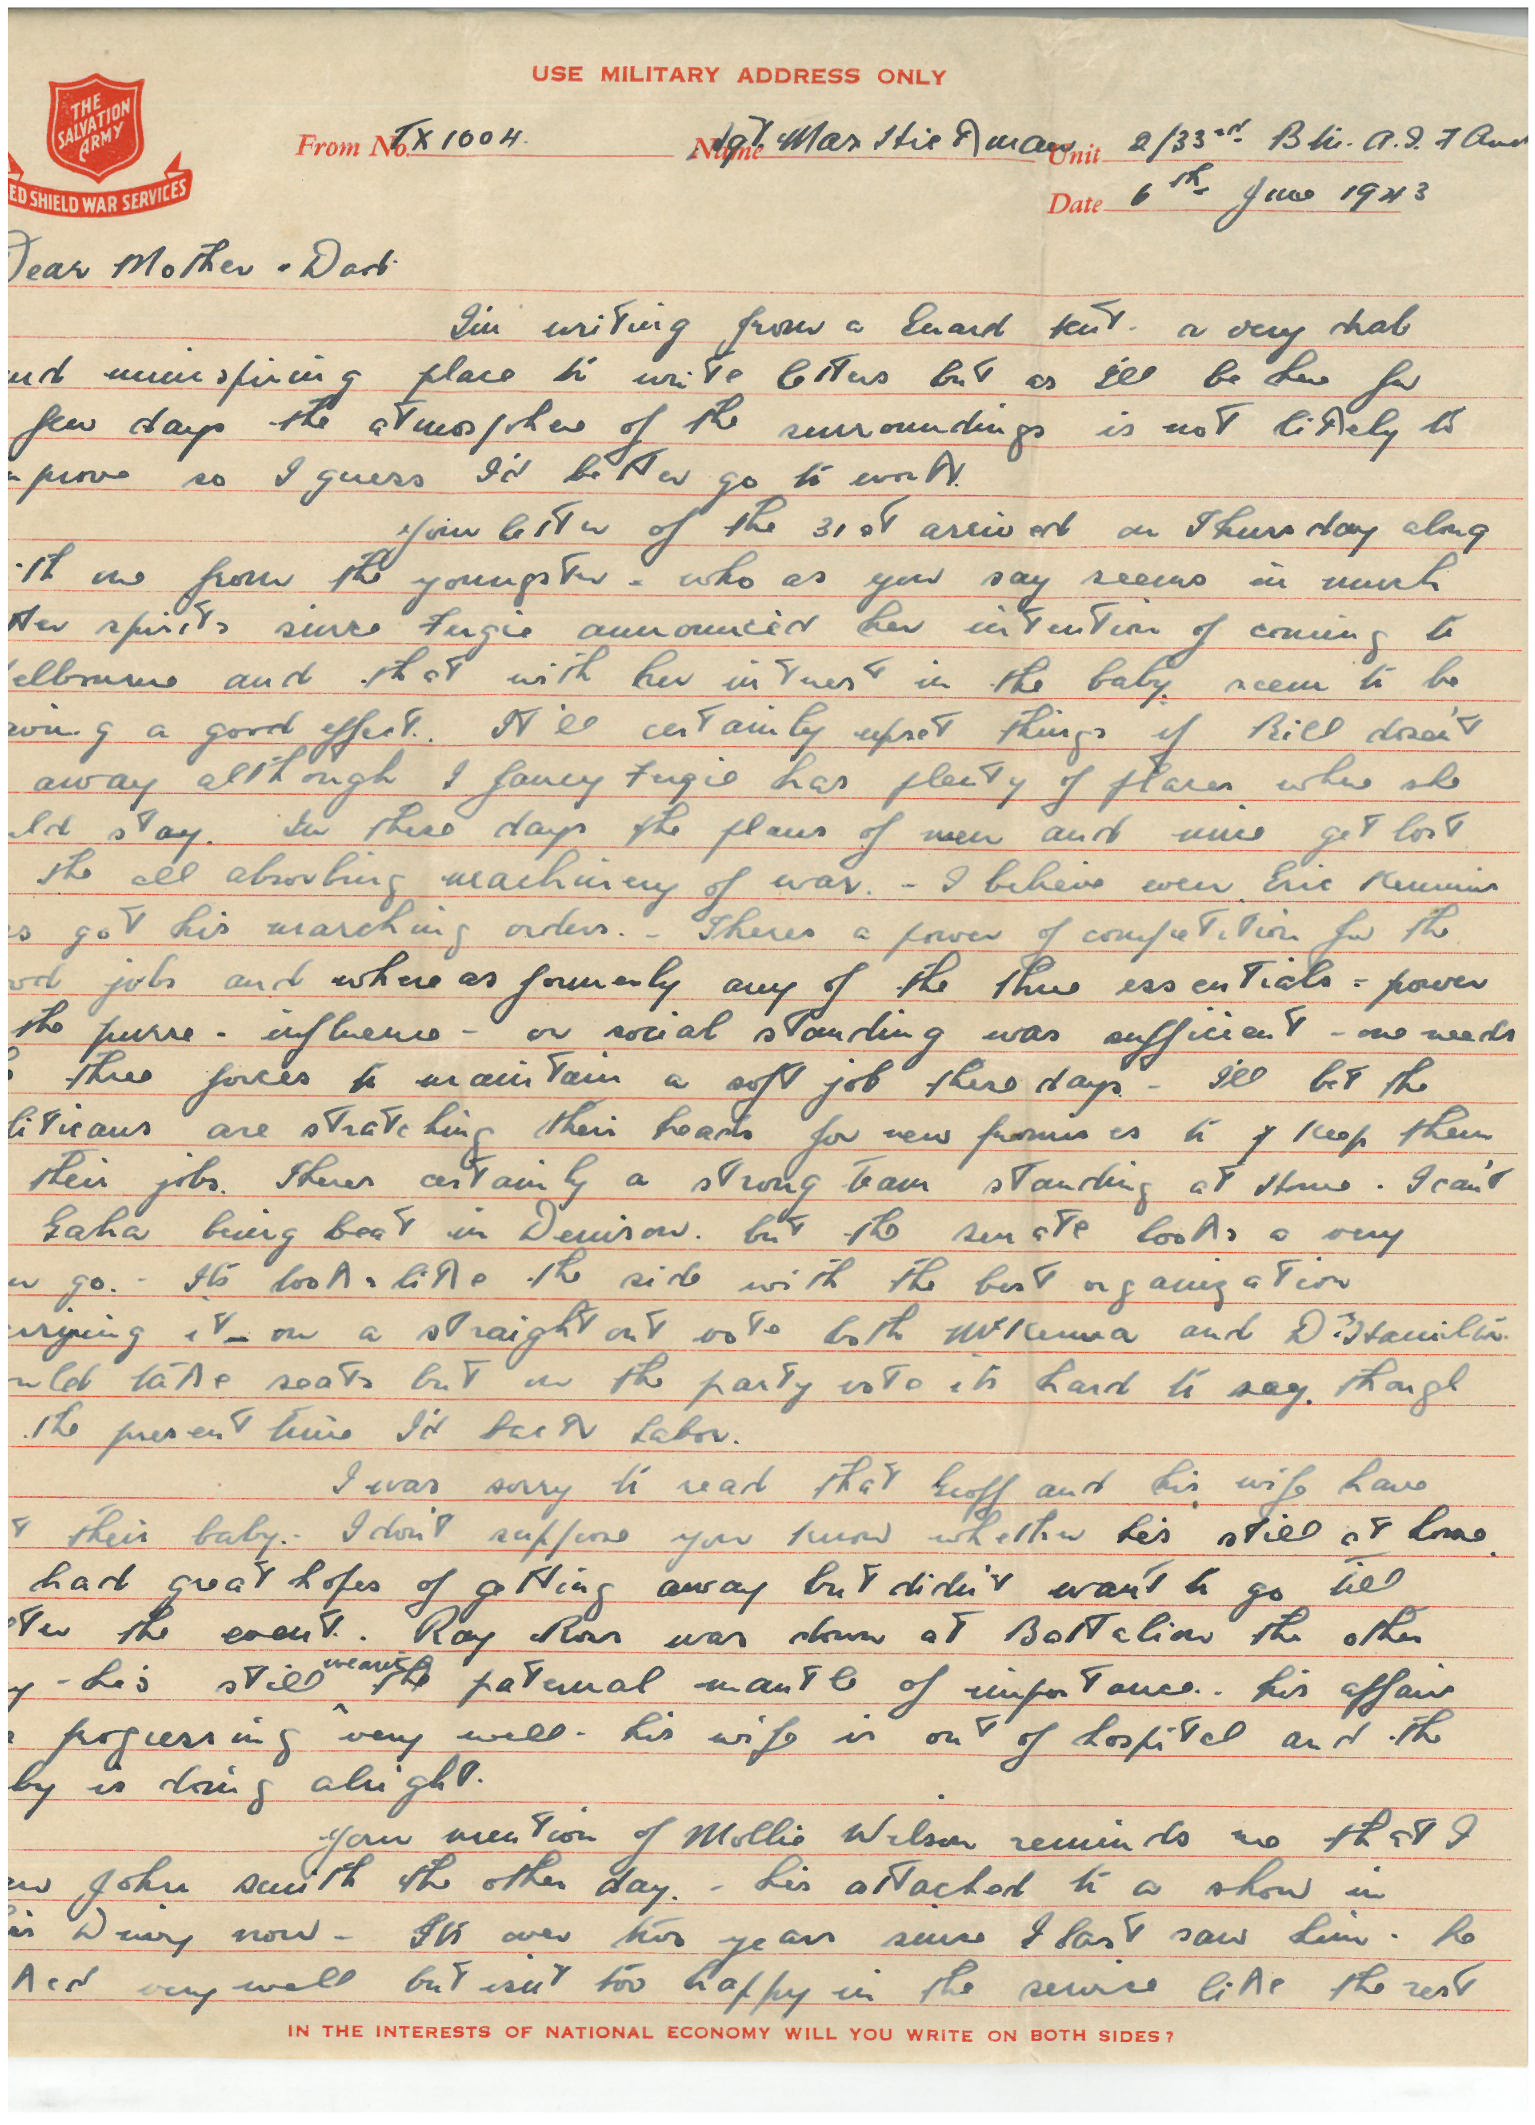 USE MILITARY ADDRESS ONLY
THE SALVATION ARMY
ED SHIELD WAR SERVICES
From No. TX1004. Name Sgt. Max Hickman Unit 2/33rd Bn. A.I.F Aus
Date 6th June 1943
Dear Mother & Dad
I'm writing from a Guard tent. a very drab
nd uninspiring place to write letters but as I'll be here for
few days the atmosphere of the surroundings is not likely to
prove so I guess I'd better go to work.
Your letter of the 31st arrived on Thursday along
ith one from the youngster - who as you say seems in much
tter spirits since Fergie announced her intention of coming to
elbourne and that with her interest in the baby. seem to be
ving a good effect. It'll certainly upset things if Bill doesn't
away although I fancy Fergie has plenty of places where she
uld stay. In these days the plans of men and mice get lost
the all absorbing machinery of war. - I believe even Eric
s got his marching orders. - Theres a power of competition for the
od jobs and whereas formerly any of the three essentials - power
the purse - influence - or social standing was sufficient - one needs
three forces to maintain a soft job these days - I'll bet the
liticians are stratching their heads for new promises to keep them
their jobs. Theres certainly a strong team standing at Home. I can't
Gaha being beat in Denison. but the senate looks a very
n go. - Its looks like the side with the best organization
rrying it - on a straight out vote both McKenna and Dr Hamilton
uld take seats but on the party vote its hard to say. though
the present time I'd back Labor.
I was sorry to read that Geoff and his wife have
t their baby. - I don't suppose you know whether his still at home.
had great hopes of getting away but didn't want to go till
ter the event. Ray Ross was down at Battalion the other
y - his still wearing the paternal mantle of importance. - his affairs
progressing very well - his wife is out of hospital and the
by is doing alright.
Your mention of Mollie Wilson reminds me that I
aw John Smith the other day. - his attached to a show in
is Divvy now - Its over two years since I last saw him - he
ked very well but isn't too happy in the service like the rest
IN THE INTERESTS OF NATIONAL ECONOMY WILL YOU WRITE ON BOTH SIDES?